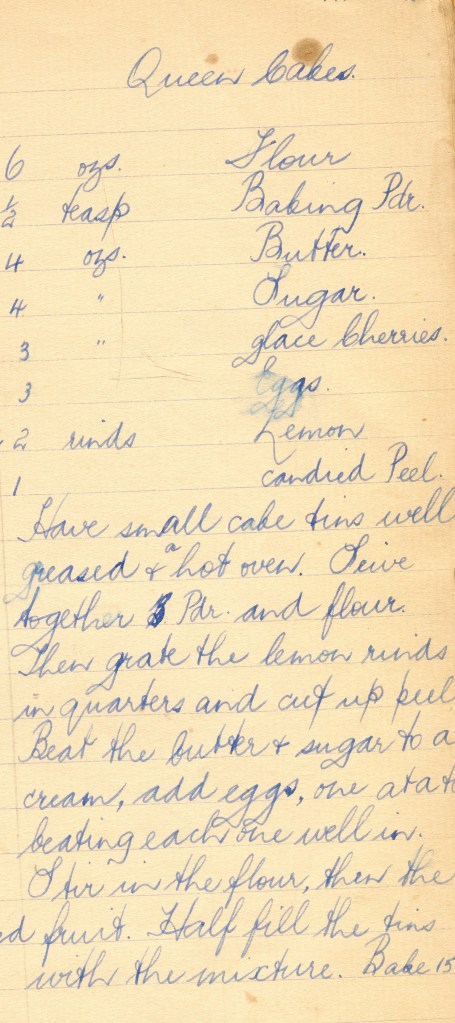 Queen Cakes.
6 ozs. Flour
½ teasp Baking Pdr.
4 ozs. Butter.
4 " Sugar.
3 " glace Cherries.
3 Eggs.
2 rinds Lemon
1 candied Peel.
Have small cake tins well
greased & a hot oven. Seive
together B Pdr. and flour.
Then grate the lemon rinds
in quarters and cut up peel
Beat the butter & sugar to a
cream, add eggs, one at a t
beating each one well in.
Stir in the flour, then the
ed fruit. Half fill the tins
with the mixture. Bake 15